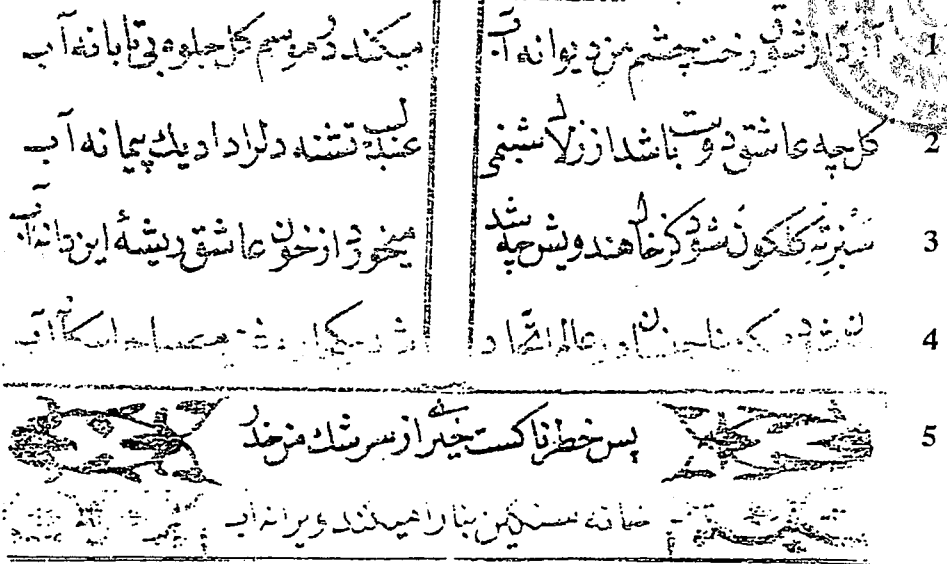 شوق رخت چشم من دیوانه آب میکند در موسم کل جلوه بی تابانه آب 1
کل چه عاشق دوست باشد از زلال شبنمی عندلیب تشنه دلرا داد یك پیمانه آب 2
سبز ته کلکون شود کر خال هندویش چه شد میخورد از خون عاشق ریشهٔ این دانه آب 3
عالم آب 4
پس خطرناکست خیلی از سرشك من حذر 5
خانه سنکین بنا را میکند ویرانه آب